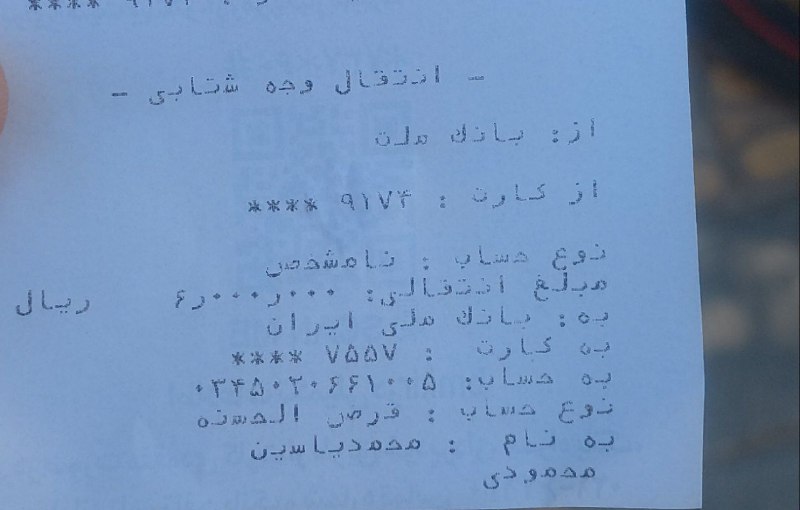 **** ۹۱۷۴
- انتقال وجه شتابی -
از: بانك ملت
از کارت : ۹۱۷۴ ****
نوع حساب : نامشخص
مبلغ انتقالی: ۶ر۰۰۰ر۰۰۰ ریال
به: بانك ملی ایران
به کارت : ۷۵۵۷ ****
به حساب: ۰۳۴۵۰۲۰۶۶۱۰۰۵
نوع حساب : قرض الحسنه
به نام : محمدیاسین
محمودی